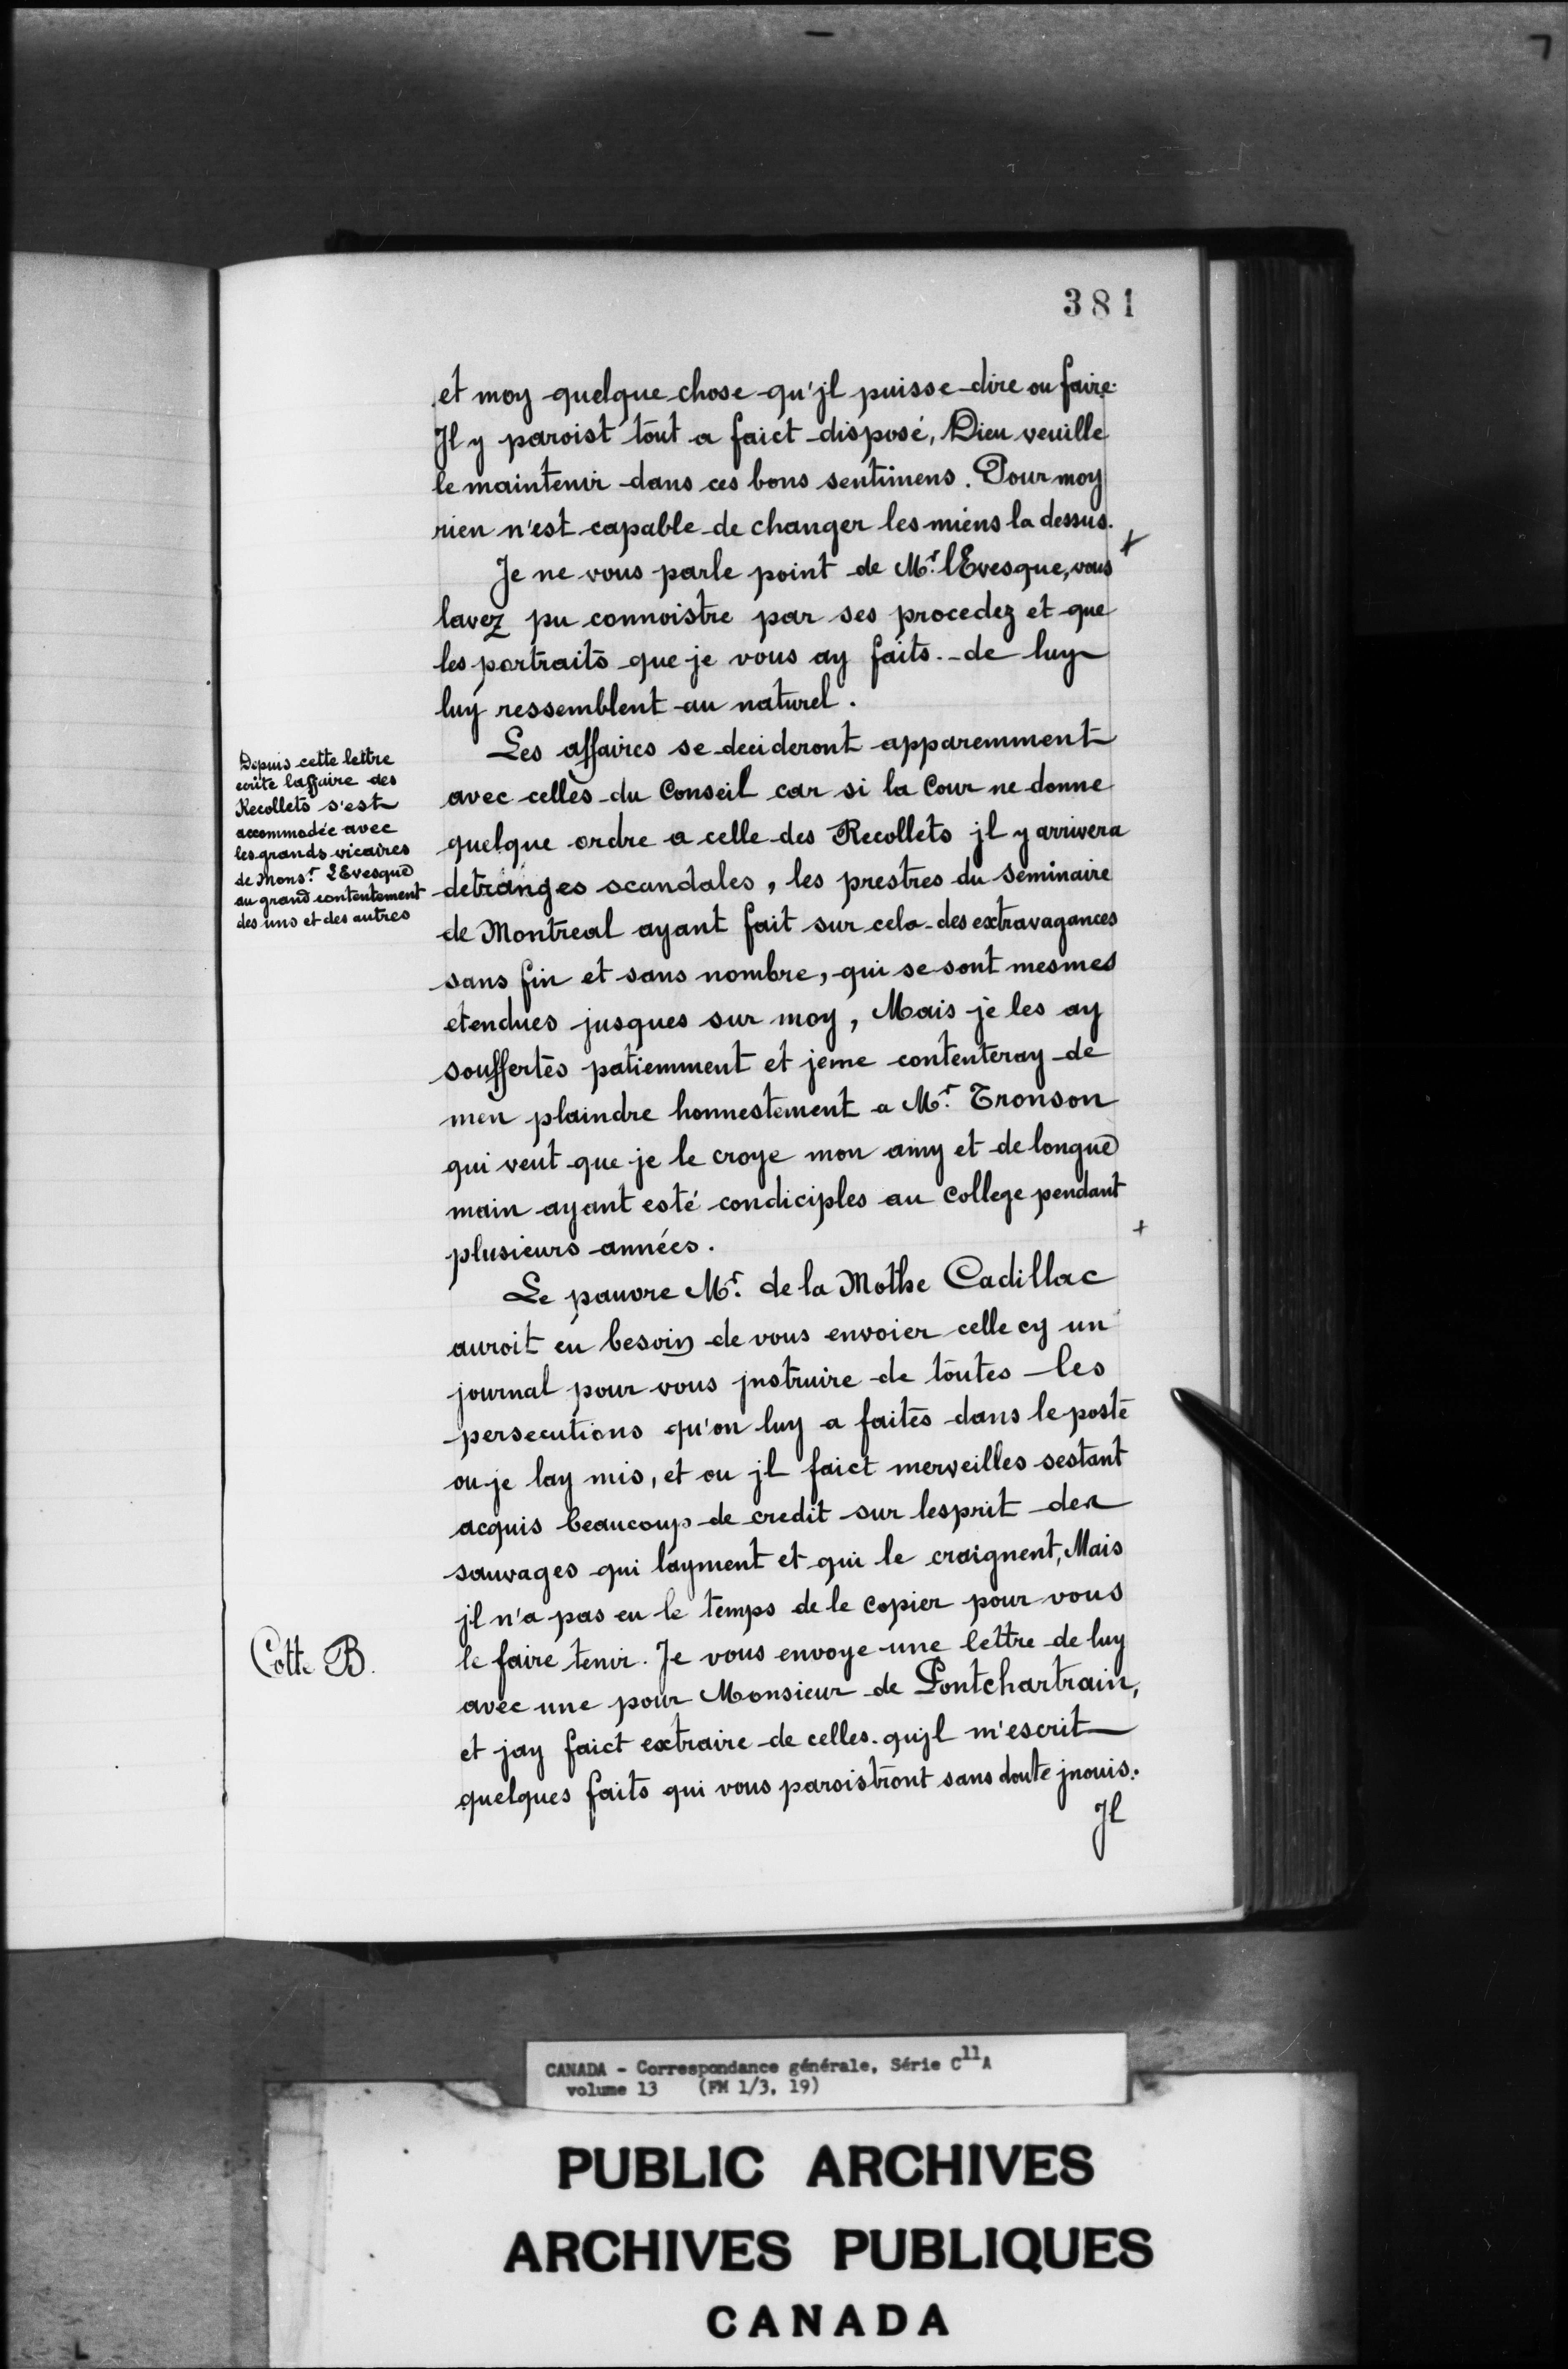 381
et moy quelque chose qu'jl puisse dire ou faire.
Jl y paroist tout a faict disposé, Dieu veuille
le maintenir dans ces bons sentimens. Pour moy
rien n'est capable de changer les miens la dessus.
+
Je ne vous parle point de Mr. lEvesque, vous
lavez pu connoistre par ses procedez et que
les portraits que je vous ay faits de luy
luy ressemblent au naturel.
Depuis cette lettre
ecrite laffaire des
Recollets s'est
accommodée avec
les grands vicaires
de Monsr. LEvesque
au grand contentement
des uns et des autres
Les affaires se decideront apparemment
avec celles du Conseil car si la Cour ne donne
quelque ordre a celle des Recollets jl y arrivera
detranges scandales, les prestres du Seminaire
de Montreal ayant fait sur cela des extravagances
sans fin et sans nombre, qui se sont mesmes
etendues jusques sur moy, Mais je les ay
souffertes patiemment et jeme contenteray de
men plaindre honnestement a Mr. Tronson
qui veut que je le croye mon amy et de longue
main ayant esté condiciples au College pendant
plusieurs années.
+
Le pauvre Mr. de la Mothe Cadillac
auroit eu besoin de vous envoier celle cy un
journal pour vous jnstruire de toutes les
persecutions qu'on luy a faites dans le poste
ou je lay mis, et ou jl faict merveilles sestant
acquis beaucoup de credit sur lesprit des
sauvages qui layment et qui le craignent, Mais
jl n'a pas eu le temps de le copier pour vous
Cotte B.
le faire tenir. Je vous envoye une lettre de luy
avec une pour Monsieur de Pontchartrain,
et jay faict extraire de celles qujl m'escrit
quelques faits qui vous paroistront sans doute jnouis.
Jl
CANADA - Correspondance générale, Série C11A
volume 13 (FM 1/3, 19)
PUBLIC ARCHIVES
ARCHIVES PUBLIQUES
CANADA